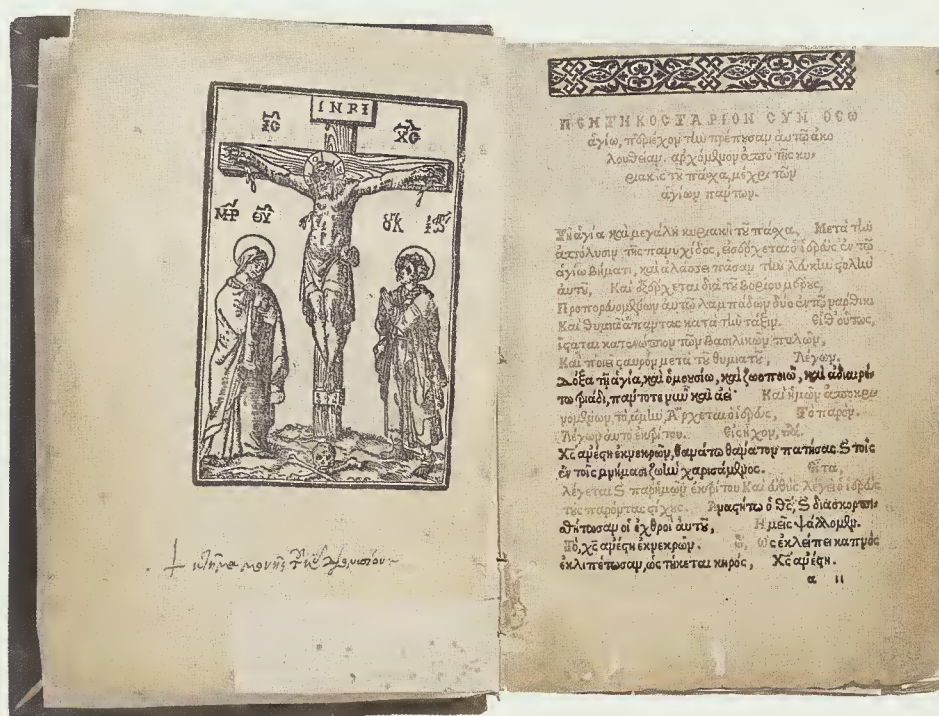 INRI
ΙC ΧC
ΜΡ ΘΥ
κτῆμα μονῆς τοῦ
ΠΕΝΤΗΚΟΣΤΑΡΙΟΝ ΣΥΝ ΘΕΩ
ἁγίω, περιέχον τὴν πρέπουσαν αὐτῶ ἀκο
λουθείαν. ἀρχόμενον ἀπὸ τῆς κυ-
ριακῆς τοῦ πάσχα, μέχρι τῶν
ἁγίων πάντων.
Τῆ ἁγία καὶ μεγάλη κυριακῆ τοῦ πάσχα, Μετὰ τὴν
ἀπόλυσιν τῆς παννυχίδος, εἰσέρχεται ὁ ἱερεὺς ἐν τῶ
ἁγίω βήματι, καὶ ἀλάσσει πᾶσαν τὴν λευκὴν στολὴν
αὐτοῦ, Καὶ ἐξέρχεται διὰ τοῦ βορίου μέρους,
Προπορευομένων αὐτῶ λαμπάδων δύο ἐν τῶ νάρθικι
Καὶ θυμιᾶ ἅπαντας κατὰ τὴν τάξιν. Εἶθ' οὕτως,
ἵσταται κατενώπιον τῶν βασιλικῶν πυλῶν,
Καὶ ποιεῖ σταυρὸν μετὰ τοῦ θυμιατοῦ, Λέγων.
Δόξα τῆ ἁγία, καὶ ὁμουσίω, καὶ ζωοποιῶ, καὶ ἀδιαιρέ
τω τριάδι, πάντοτε νῦν καὶ ἀεὶ Καὶ ἡμῶν ἀποκρι
νομένων, τὸ, ἀμὴν, Ἄρχεται ὁ ἱερεὺς, Τὸ παρὸν.
Λέγων αὐτὸ ἐκ τρίτου. Εἰς ἦχον, πλ. α.
Χς ἀνέστη ἐκ νεκρῶν, θανάτω θάνατον πατήσας. Καὶ τοῖς
ἐν τοῖς μνήμασι ζωὴν χαρισάμενος. Εἶτα,
λέγεται καὶ παρ' ἡμῶν ἐκ τρίτου Καὶ εὐθὺς λέγει ὁ ἱερεὺς
τοὺς παρόντας στίχους. Ἀναστήτω ὁ θς, καὶ διασκορπι-
σθήτωσαν οἱ ἐχθροὶ αὐτοῦ, Ἡμεῖς ψάλλομεν.
Τὸ, χς ἀνέστη ἐκ νεκρῶν. Ὡς ἐκλείπει καπνὸς
ἐκλιπέτωσαν, ὡς τήκεται κηρὸς, Χς ἀνέστη.
α ιι